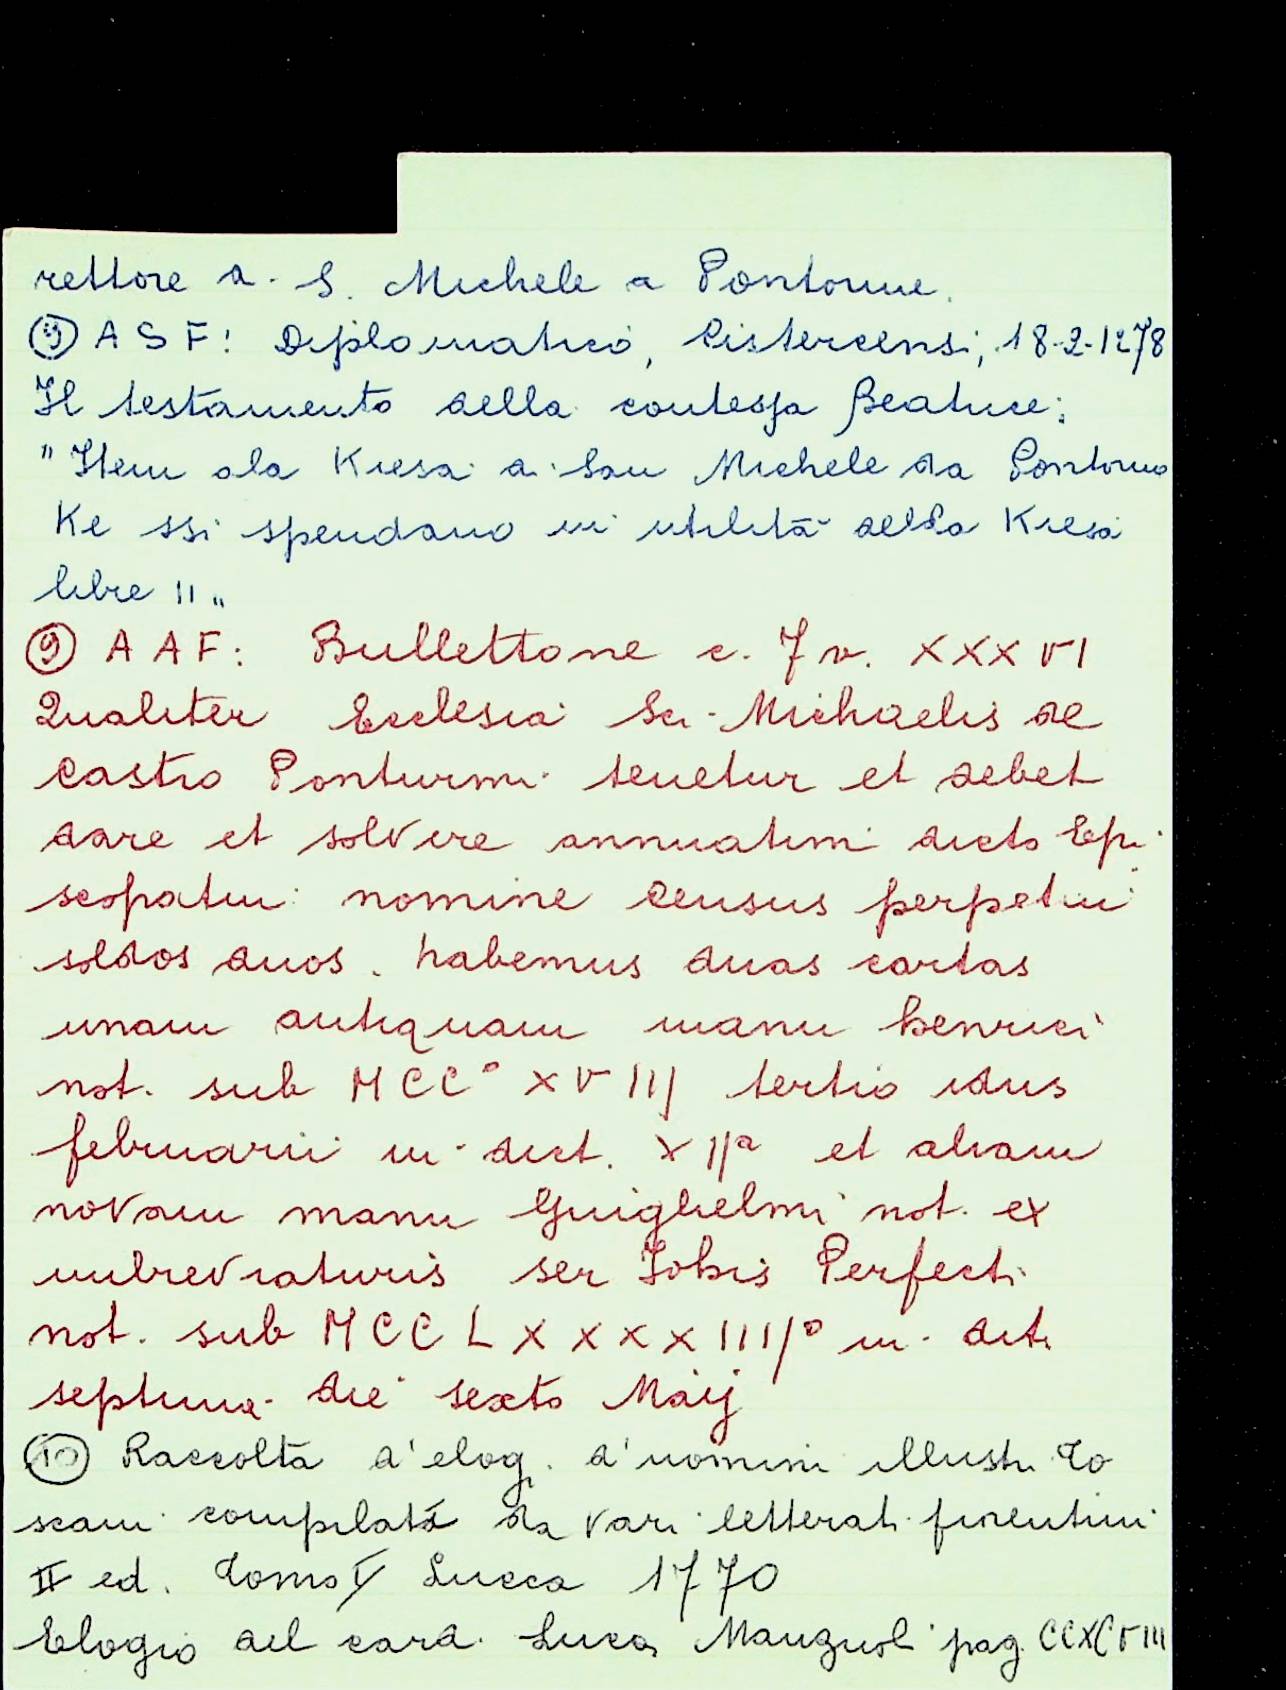 rettore di S. Michele a Pontorme.
9) ASF: Diplomatico, Cistercensi, 18-2-1278
Il testamento della contessa Beatrice:
"Item ala Kiesa di San Michele da Pontormo
Ke ssi spendano in utilità della Kiesa
libre II"
9) AAF: Bullettone c. 7v. XXXVI
Qualiter Ecclesia Sci Michaelis de
castro Ponturmi tenetur et debet
dare et solvere annuatim dicto Epi
scopatui nomine census perpetui
soldos duos. habemus duas cartas
unam antiquam manu henrici
not. sub MCC° XVIIJ tertio idus
februarii indict. XIIª et aliam
novam manu Guiglielmi not. ex
imbreviaturis ser Johis Perfecti
not. sub MCCLXXXXIIIJ° indit.
septima die sexto Maij
10) Raccolta d'elog. d'uomini illustri To
scani compilata da vari letterati fiorentini
II ed. Tomo I Lucca 1770
Elogio del card. Luca Manzuoli pag. CCXCVIII